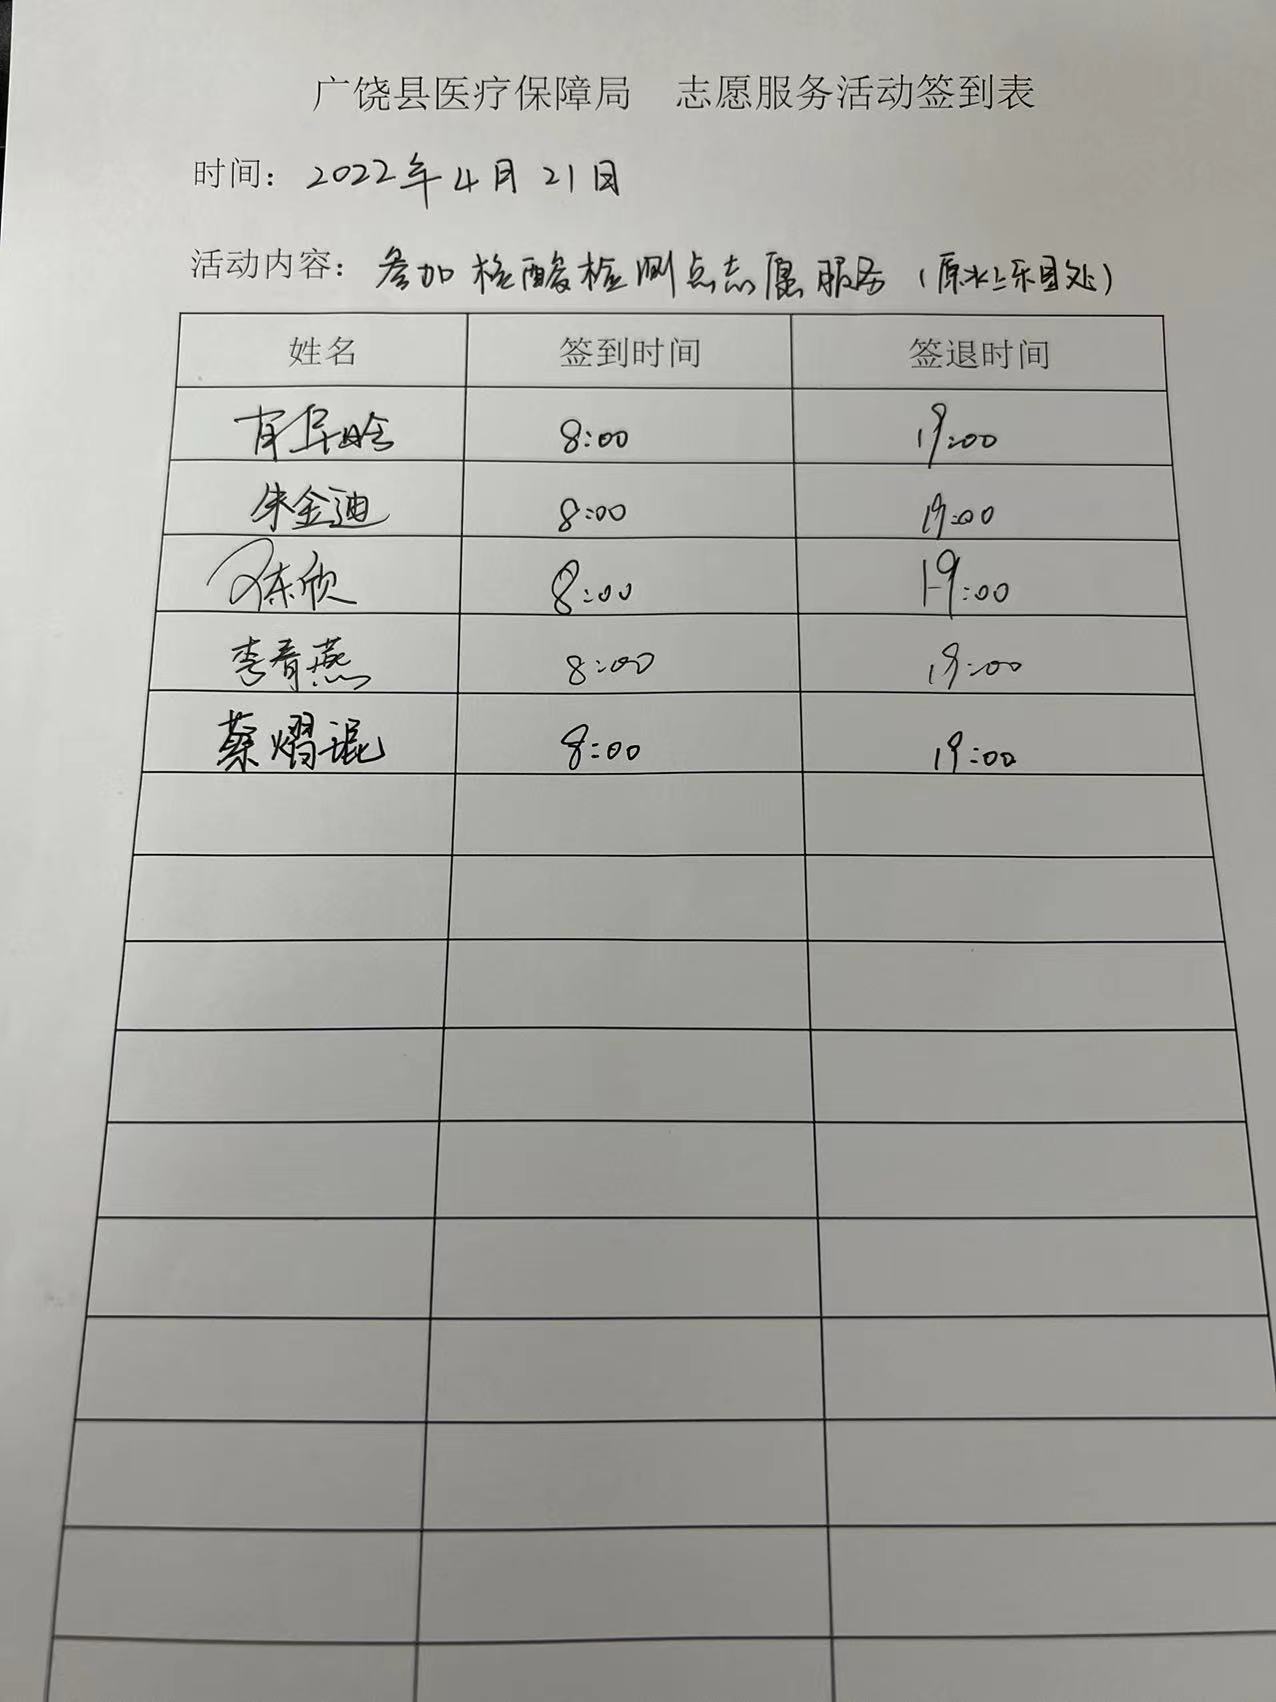 广饶县医疗保障局 志愿服务活动签到表
时间：2022年4月21日
活动内容：参加核酸检测点志愿服务（原水上乐园处）
姓名 签到时间 签退时间
8:00 19:00
朱金迪 8:00 19:00
陈欣 8:00 19:00
李春燕 8:00 19:00
蔡熠琨 8:00 19:00